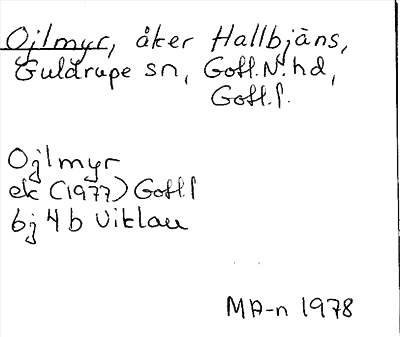 Ojlmyr, åker Hallbjäns,
Guldrupe sn, Gotl. N. hd,
Gotl. l.
Ojlmyr
ek (1977) Gotl l
6j 4 b Viklau
MA-n 1978